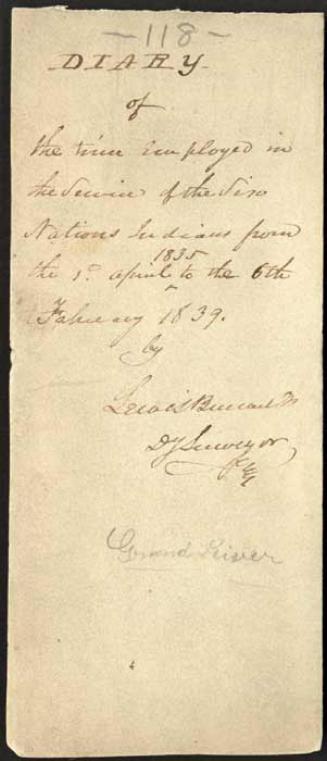 —118—
DIARY
of
the time Employed in
the Service of the Six
Nations Indians from
1835
the 1st april to the 6th
February 1839.
by
Lewis Burwell
Dy Surveyor
Grand River